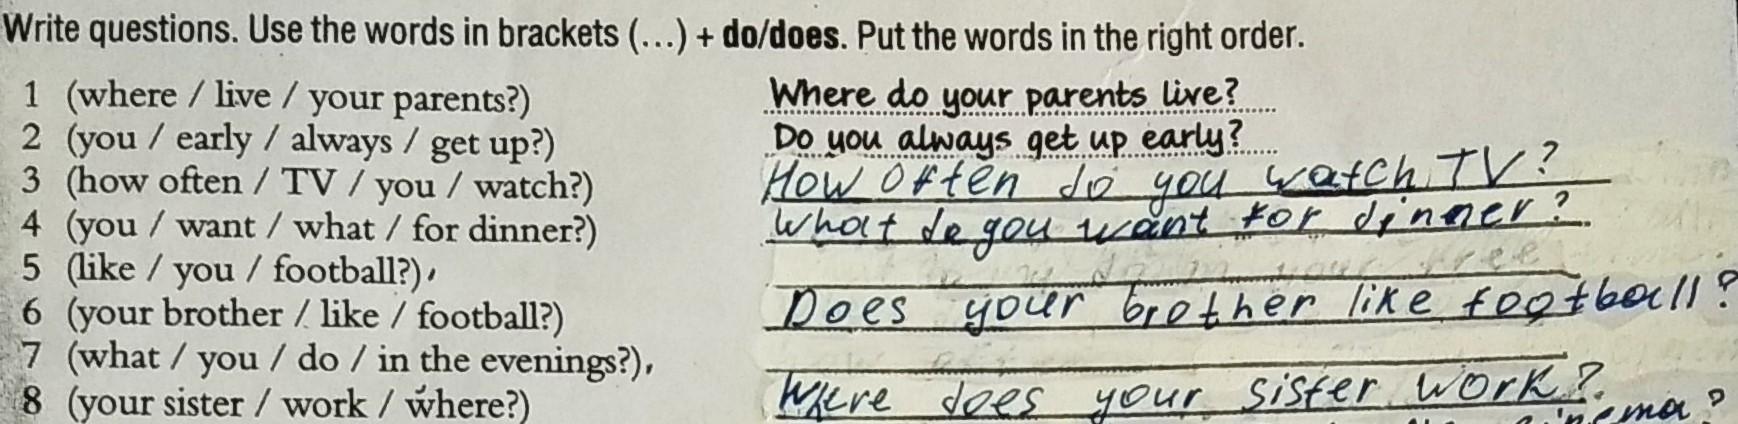 Write questions. Use the words in brackets (...) + do/does. Put the words in the right order.
1 (where / live / your parents?) Where do your parents live?
2 (you / early / always / get up?) Do you always get up early?
3 (how often / TV / you / watch?) How often do you watch TV?
4 (you / want / what / for dinner?) What do you want for dinner?
5 (like / you / football?)
6 (your brother / like / football?) Does your brother like football?
7 (what / you / do / in the evenings?)
8 (your sister / work / where?) Where does your sister work?